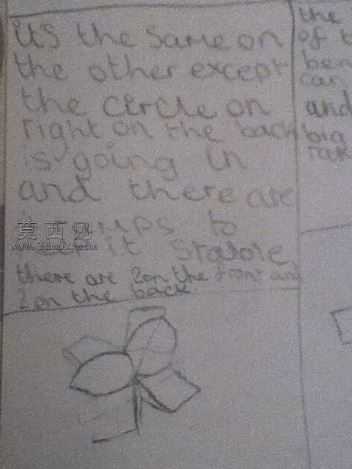 its the same on
the other except
the circle on
right on the back
is going in
and there are
to
it stable
there are 2on the front and
2on the back
the
of
can
and
big